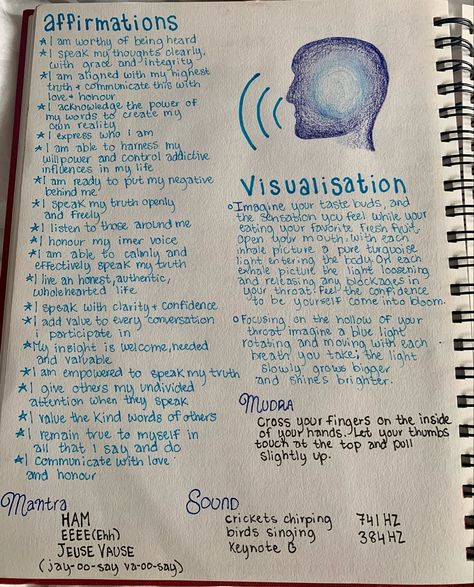 affirmations
*I am worthy of being heard
*I speak my thoughts clearly,
with grace and integrity
*I am aligned with my highest
truth + communicate this with
love + honour
*I acknowledge the power of
my words to create my
own reality
*I express who I am
*I am able to harness my
willpower and control addictive
influences in my life
*I am ready to put my negative
behind me
*I speak my truth openly
and freely
*I listen to those around me
*I honour my inner voice
*I am able to calmly and
effectively speak my truth
*I live an honest, authentic,
wholehearted life
*I speak with clarity + confidence
*I add value to every conversation
i participate in
*My insight is welcome, needed
and valuable
*I am empowered to speak my truth
*I give others my undivided
attention when they speak
*I value the kind words of others
*I remain true to myself in
all that I say and do
*I communicate with love
and honour
Visualisation
Imagine your taste buds, and
the sensation you feel while your
eating your favorite fresh fruit.
Open your mouth, with each
inhale picture a pure turquoise
light entering the body. On each
exhale picture the light loosening
and releasing any blockages in
your throat. Feel the confidence
to be yourself come into bloom.
Focusing on the hollow of your
throat imagine a blue light
rotating and moving with each
breath you take; the light
slowly grows bigger
and shines brighter.
Mudra
Cross your fingers on the inside
of your hands. Let your thumbs
touch at the top and pull
slightly up.
Mantra
HAM
EEEE(Ehh)
JEUSE VAUSE
(jay-oo-say va-oo-say)
Sound
crickets chirping 741 HZ
birds singing 384 HZ
Keynote G